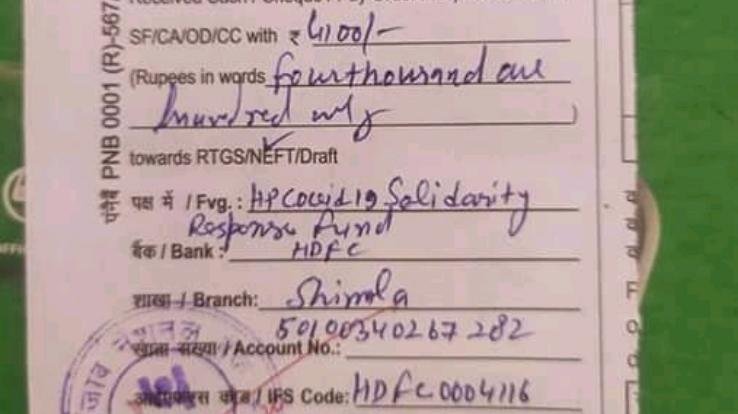 SF/CA/OD/CC with ₹ 4100/-
(Rupees in words fourthousand one
hundred only )
towards RTGS/NEFT/Draft
पक्ष में / Fvg. : HP Covid 19 Solidarity
Response fund
बैंक / Bank : HDFC
शाखा / Branch: Shimla
50100340267282
खाता संख्या / Account No.:
आईएफएस कोड / IFS Code: HDFC0004116
पीनैबी PNB 0001 (R)-567/